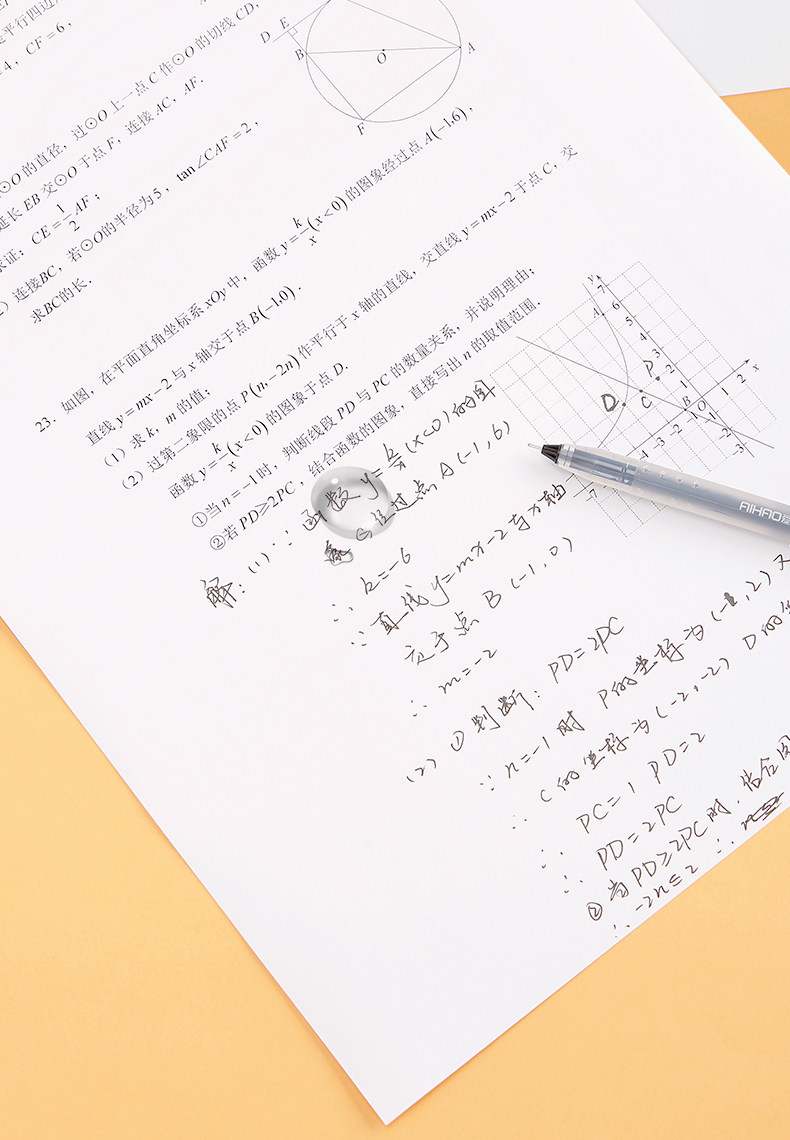 是平行四边
4，CF=6，
⊙O的直径，过⊙O上一点C作⊙O的切线CD，
延长EB交⊙O于点F，连接AC，AF．
求证：CE=1/2AF；
连接BC，若⊙O的半径为5，tan∠CAF=2，
求BC的长．
D E
B O A
F
23. 如图，在平面直角坐标系xOy中，函数y=k/x(x<0)的图象经过点A(-1,6)，
直线y=mx-2与x轴交于点B(-1,0)．
(1) 求k，m的值；
(2) 过第二象限的点P(n,-2n)作平行于x轴的直线，交直线y=mx-2于点C，交
函数y=k/x(x<0)的图象于点D．
①当n=-1时，判断线段PD与PC的数量关系，并说明理由；
②若PD≥2PC，结合函数的图象，直接写出n的取值范围．
y
7
A 6
5
4
3
P 2
D C 1
-4 -3 -2 B O 1 2 x
-1
-2
-3
-7
解：(1)∵函数y=k/x(x<0)的图
象 经过点A(-1,6)
∴ k=-6
∵直线y=mx-2与x轴
交于点B(-1,0)
∴ m=-2
(2) ①判断：PD=2PC
∵n=-1时 P的坐标为(-1,2)又
∴ C的坐标为(-2,-2) D的坐
∴ PC=1 PD=2
∴ PD=2PC
②当PD≥2PC时，结合图
∴ -2n≤2 ∴
AIHAO